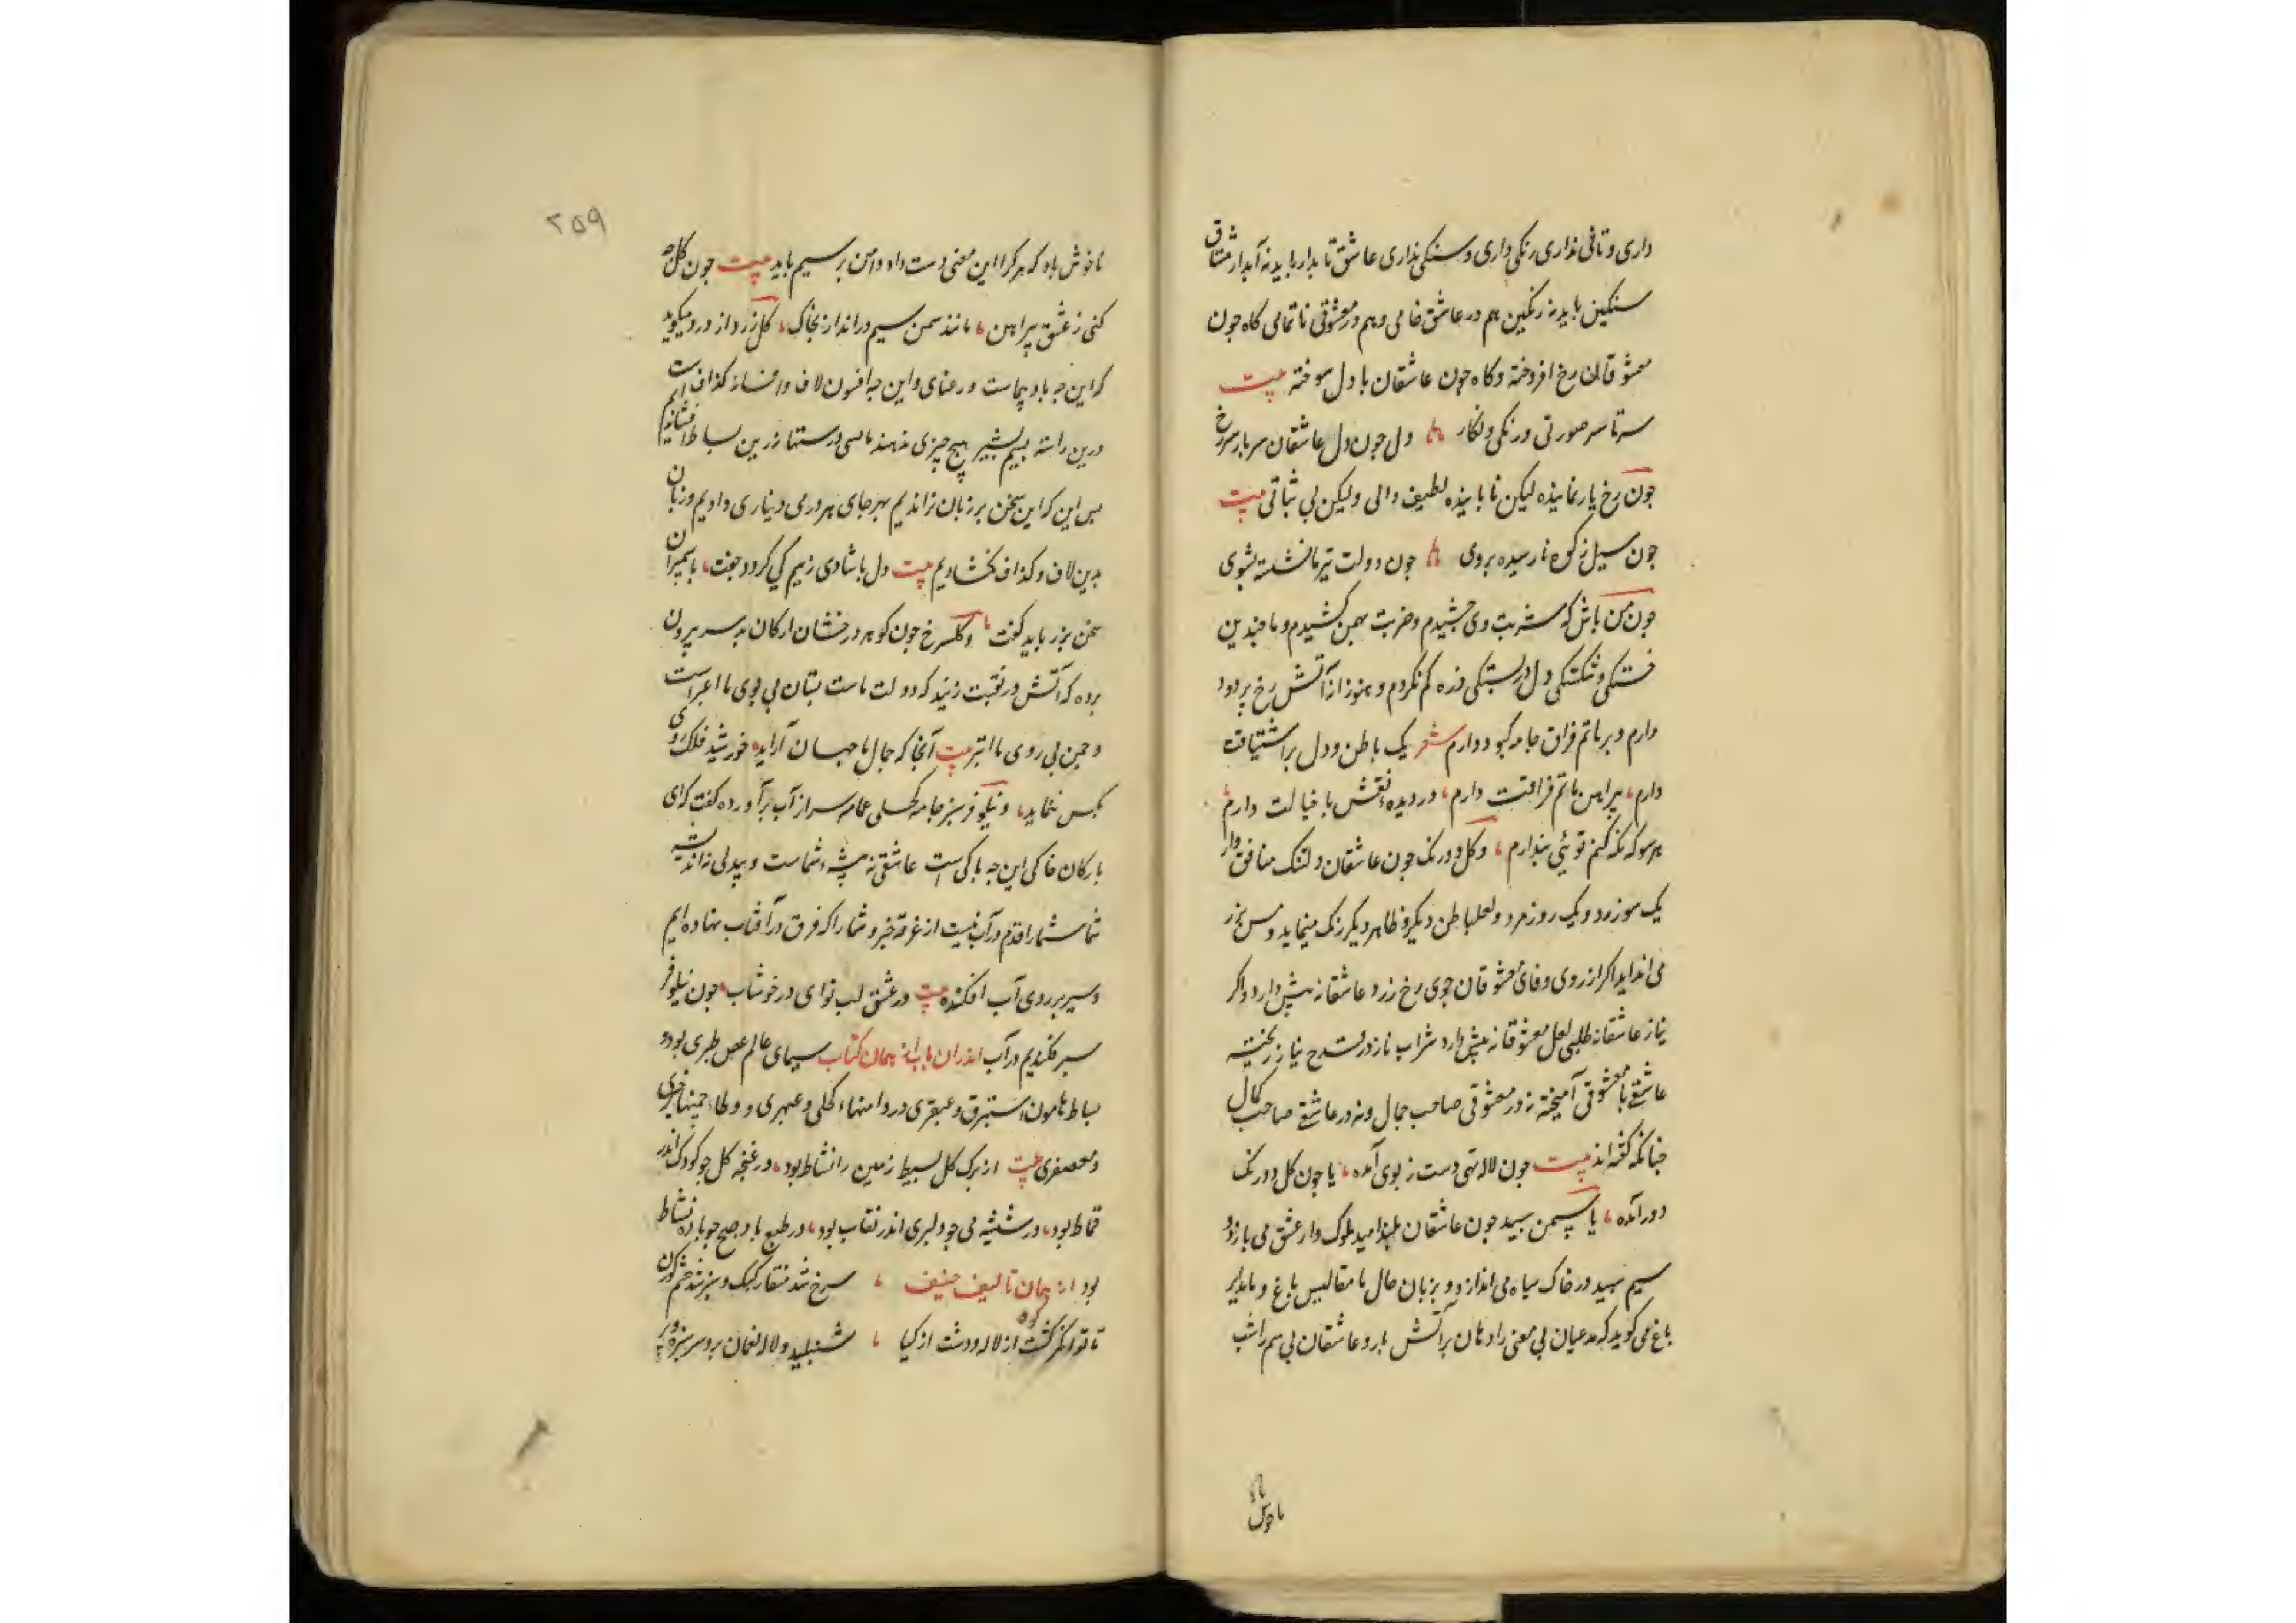 داری و تافی نداری رنکی داری و سنکی نداری عاشق تابدار باید نه آبدار مشتاق
سنکین باید نه رنکین هم در عاشقی خامی و هم در معشوقی ناتمامی کاه جون
معشوقان رخ افروخته و کاه جون عاشقان با دل سوخته بیت
سرتاسر صورتی و رنکی و نکار دل جون دل عاشقان سر بار سرخ
جون رخ یار نماینده لیکن نا باینده لطیف والی ولیکن بی ثباتی بیت
جون سیل ز کوه نا رسیده بروی جون دولت تیز نا نشسته بشوی
جون من باش که شربت وی جشیدم و ضربت بهمن کشیدم و با جندین
خستکی و شکستکی و دل بستکی ذره کم نکردم و هنوز از آتش رخ پر دود
دارم و بر ماتم فراق جامه کبود دارم شعر یک باطن و دل بر اشتیاقت
دارم پیراهن ماتم فراقت دارم در دیده نقش با خیالت دارم
هر سو که نکه کنم توئی بندارم و کل دو رنک جون عاشقان دلتنک منافق وار
یک سو زرد و یک روز مرد و لعل باطن دیکر و ظاهر دیکر رنک مینماید و مس بزر
می انداید اکر از روی وفای معشوقان جوی رخ زرد عاشقانه پیش دارد و اکر
نیاز عاشقانه طلبی لعل معشوقانه پیش دارد شراب ناز در قدح نیاز ریخته
عاشقی با معشوقی آمیخته نه در معشوقی صاحب جمال و نه در عاشقی صاحب کمال
جنانکه کفته اند بیت جون لاله تهی دست ز بوی آمده یا جون کل دو رنک
دور آمده یا سمن سبید جون عاشقان بلند امید ملوک وار عشق می بازد و
سیم سبید در خاک سیاه می اندازد و بزبان حال با مفالیس باغ و
باغ می کوید که مدعیان بی معنی را دهان بر آتش باد و عاشقان بی سیم را شب
ناخوش
۲۵۹
ناخوش باد که هر کرا این معنی دست داد دامن بر سیم باید بیت جون کل جه
کنی ز عشق پیراهن مانند سمن سیم در انداز بخاک کل زرد از درد میکوید
که این جه باد پیماست و رعنای و این جه افسون لاف و افسانه کذاف است
درین راسته بسیم بشیر هیچ چیزی ندهند مالی درستهای زرین بساط افشاندیم
بس این که این سخن بر زبان نراندیم بهر جای هر درمی دیناری دادیم و زبان
بدین لاف و کذاف نکشادیم بیت دل با شادی ز سیم کی کردد جفت با سیمبران
سخن بزر باید کفت و کل سرخ جون کوهر درخشان از کان بدر سر بیرون
برده که آتش در نقبت زنید که دولت ماست بستان بی بوی ما اغبر است
و جمن بی روی ما ابتر بیت آنجا که جمال ما جهان آراید خورشید فلک روی
بکس ننماید و نیلوفر سبز جامه کحلی عمامه سر از آب برآورده کفت که ای
بارکان خاکی این جه باکی است عاشقی نه پیشه شماست و بیدلی نه اندیشه
شماست شما را قدم در آب نیست از غرقه خبر و شما را که فرق در آفتاب نهاده ایم
و سپر بر روی آب افکنده بیت در عشق لب تو ای در خوشاب جون نیلوفر
سپر فکندیم در آب اندران باب از همان کتاب سیمای عالم طبری بود و
بساط هامون استبرق و عبقری در دامنهاء کحلی و عبهری و وطاء جمنها
و معصفری بیت از برک کل بسیط زمین را نشاط بود در غنجه کل جو کودک اندر
قماط بود در شیشه می جو دلبری اندر نقاب بود در طبع باد صبح جو باده نشاط
بود از همان تالیف حنیف سرخ شد منقار کبک و سبز شد
تا توانکر کشت کوه از لاله و دشت از کیا شنبلید و لاله نعمان بر سر سبزه